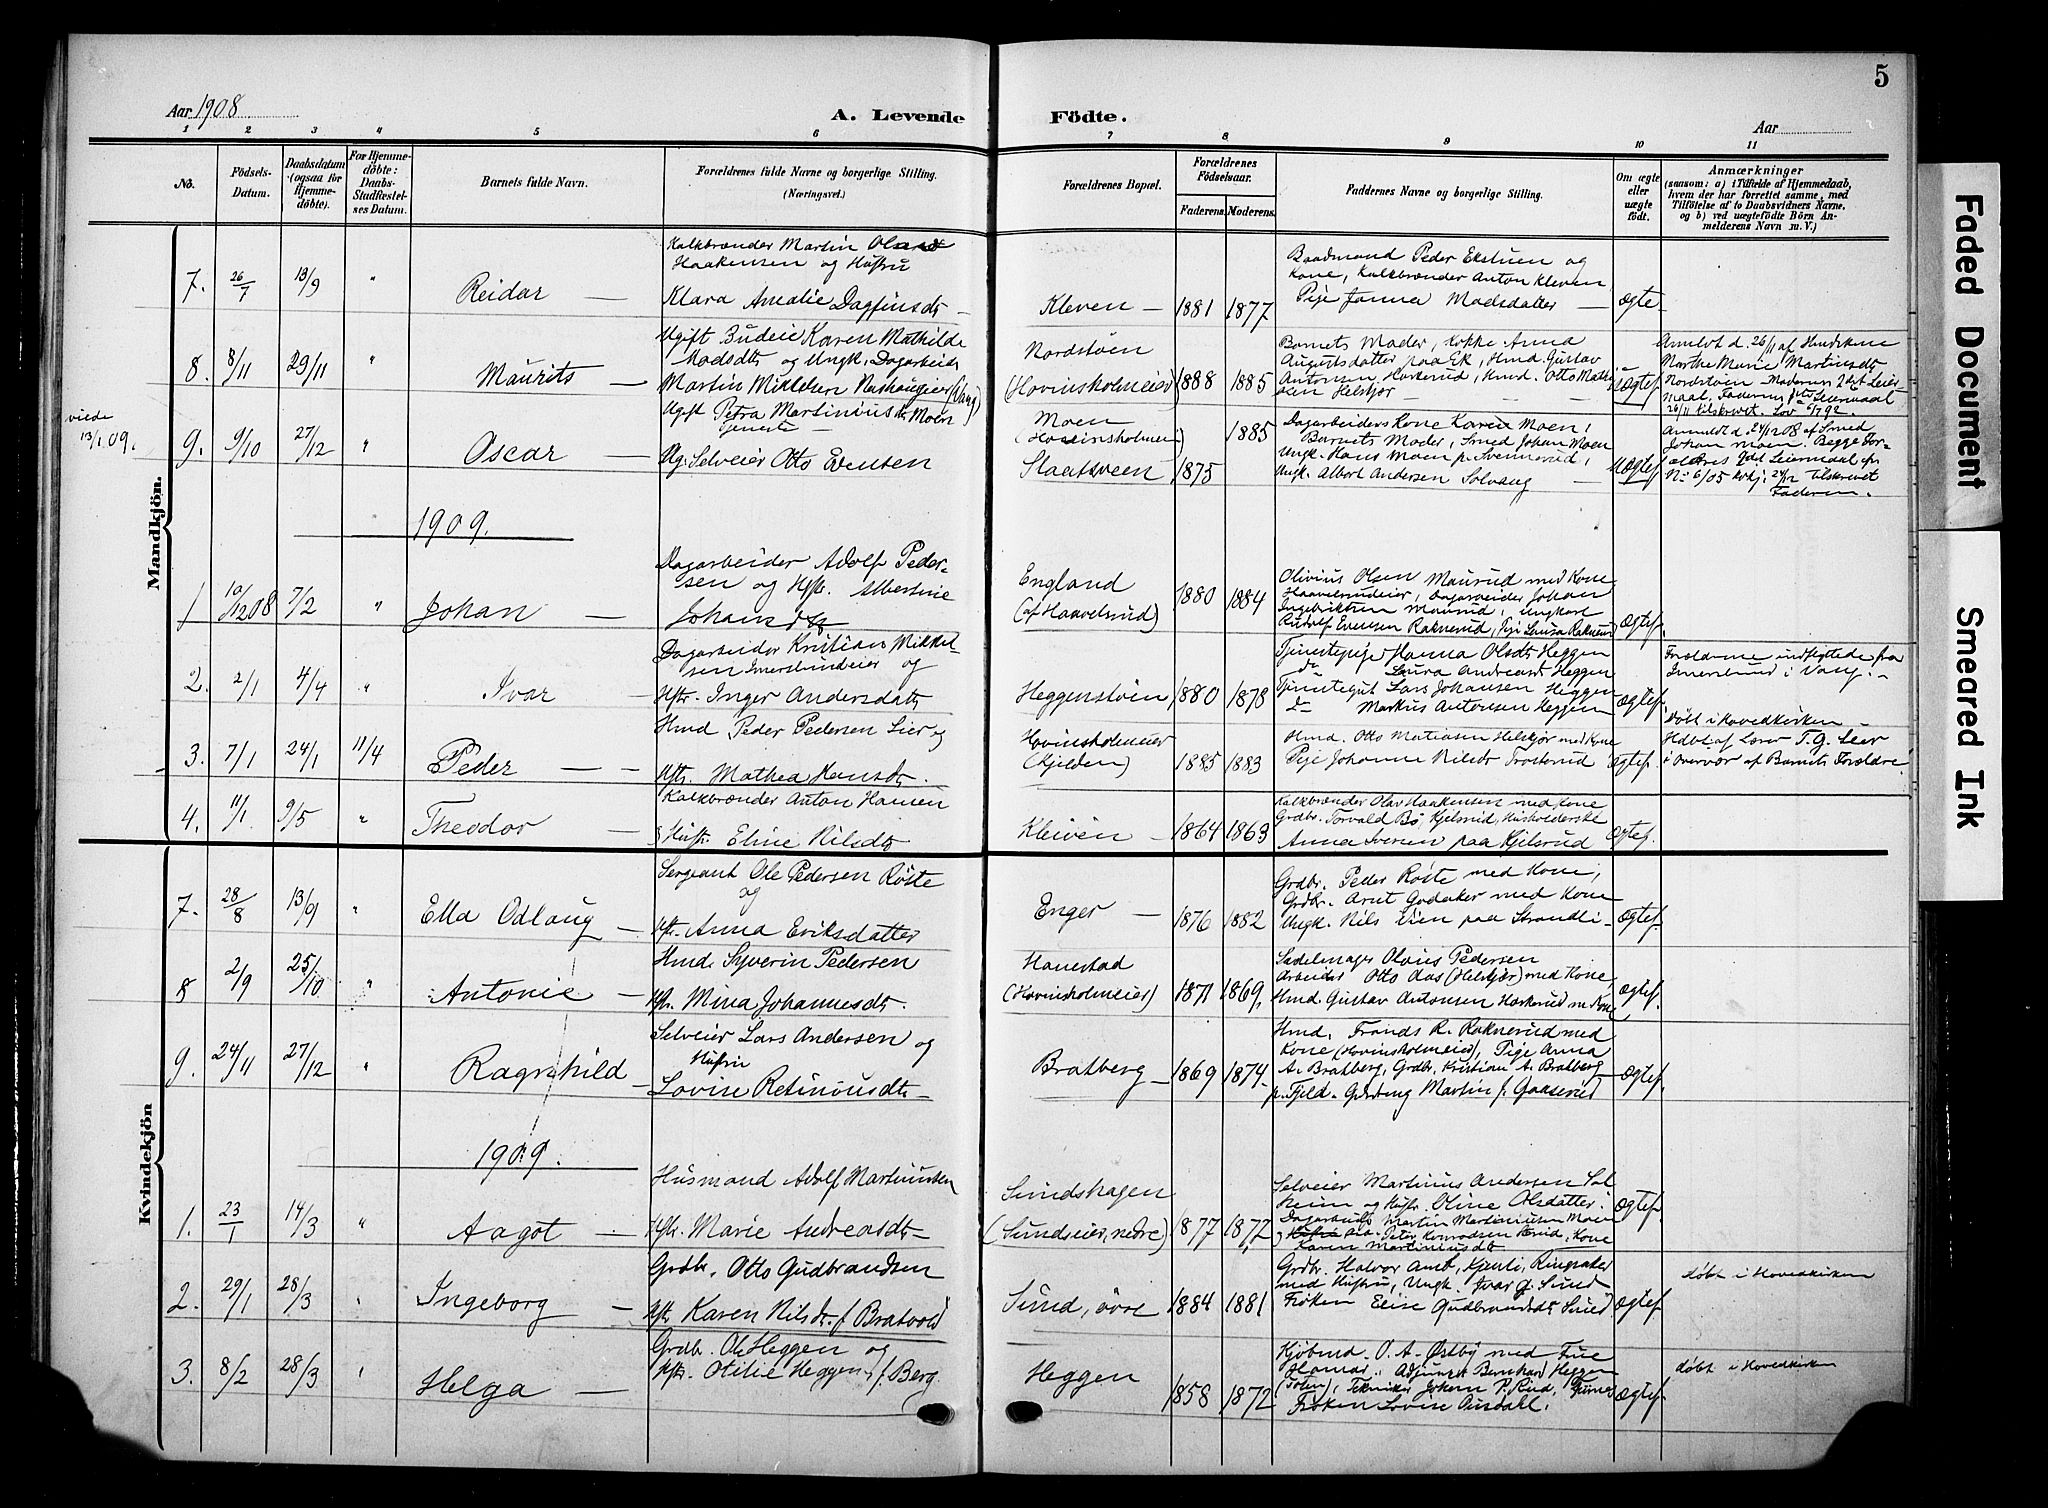 5
Aar 1908
A. Levende Födte.
Aar
1 2 3 4 5 6 7 8 9 10 11
No.
Födsels-Datum.
Daabsdatum (ogsaa for Hjemme-döbte).
For Hjemme-döbte: Daabs-Stadfæstel-ses Datum.
Barnets fulde Navn.
Forældrenes fulde Navne og borgerlige Stilling. (Næringsvei.)
Forældrenes Bopæl.
Forældrenes Födselsaar.
Faderens. Moderens.
Faddernes Navne og borgerlige Stilling.
Om ægte eller uægte födt.
Anmærkninger
(saasom: a) i Tilfælde af Hjemmedaab,
hvem der har forrettet samme, med
Tilföielse af to Daabsvidners Navne,
og b) ved uægtefödte Börn An-
melderens Navn m. V.)
Mandkjön.
7. 26/7 13/9 " Reidar —
Kalkbrænder Martin
Haakensen og Hustru
Klara Amalie Dagfinsdtr
Kleven — 1881 1877
Baadmand Peder Ekstuen og
Kone, Kalkbrænder Anton Kleven,
Pige Janna Madsdatter — ægte
8. 8/11 29/11 " Maurits —
Ugift Budeie Karen Mathilde
Madsdtr og Ungk. Dagarbeider
Martin Mikkelsen (Vang)
Nordstøen
(Hovinsholmeier) 1888 1885
Barnets Moder, Kokke Anna
Augustsdatter paa Ek, Hmd. Gustav
Antonsen Haskerud, Hmd. Otto Mathi-
sen Helskjør — Uægtef
Anmeldt d. 26/11 af Huuskone
Marthe Marie Martinsdtr
Nordstøen — Moderens 2det Leier-
maal, Faderens Leiermaal
26/11 tilskrevet. Lov 6/7 92.
viede
13/1 09.
9. 9/10 27/12 " Oscar —
Ugift Petra Martiniusdtr Moen
Tjeneste —
Ug. Selveier Otto Evensen
Moen
(Hovinsholmeier) 1885
Staatsveen 1875
Dagarbeiders Kone Karen Moen,
Barnets Moder, Smed Johan Moen
Ungk. Hans Moen p. Svennerud,
Ungk. Albert Andersen Solvang — Uægtef
Anmeldt d. 24/12 08 af Smed
Johan Moen. Begge For-
ældres 2det Leiermaal cfr
N= 6/05 24/12 tilskrevet
Faderen.
1909.
1 10/12 08 7/2 " Johan —
Dagarbeider Adolf Peder-
sen og Hstr. Albertine
Johansdtr
England
(af Haavelsrud) 1880 1884
Olivius Olsen Maurud med Kone
Haavelsrudeier, Dagarbeider Johan
Ingebriktsen Maurud, Ungkarl
Rudolf Evensen Raknerud, Pige Laura Raknerud Ægtef.
2. 2/1 4/4 " Ivar —
Dagarbeider Kristian Mikkel-
sen Imerslundeier og
Hstr. Inger Andersdatr
Heggenstøen 1880 1878
Tjenestepige Hanna Olsdtr Heggen
do Laura Andreasdt Heggen
Tjenestegut Lars Johansen Heggen
do Markus Antonsen Heggen Ægtef
Forældrene indflyttede fra
Imerslund i Vang. —
3. 7/1 24/1 11/4 Peder — —
Hmd Peder Pedersen Lier og
Hstr. Mathea Hansdtr.
Hovinsholmeier
(Kjelden) 1885 1883
Hmd. Otto Matiasen Helskjør med Kone
Pige Johanne Nilsdtr Frosterud Ægtef
Døbt i Hovedkirken —
Hdbt. af Lærer T. G. Lier
i Overvær af Barnets Forældre
4. 11/1 9/5 " Theodor —
Kalkbrænder Anton Hansen
& Hustr. Eline Nilsdtr
Kleven — 1864 1863
Kalkbrænder Olav Haakensen med Kone
Grdbr. Torvald Bø, Kjelsrud, Husholderske
Anna Iversen paa Kjelsrud Ægtef.
Kvindekjön
7. 28/8 13/9 " Ella Odlaug —
Sergeant Ole Pedersen Røste
og
Hstr. Anna Eriksdatter
Enger — 1876 1882
Grdbr. Peder Røste med Kone,
Grdbr. Arnt Godaker med Kone
Ungk. Nils Lien paa Strandli — Ægtef
8 2/9 25/10 " Antonie —
Hmd. Syverin Pedersen
Hstr. Mina Johannesdtr.
Hanestad
(Hovinsholmeier) 1871 1869.
Sadelmager Olaus Pedersen
Arbeider Otto Aas (Helskjør) med Kone,
Hmd. Gustav Antonsen Haskerud m. Kone Ægtef.
9. 24/11 27/12 " Ragnhild —
Selveier Lars Andersen og
Hustru
Lovise Retinousdtr —
Bratberg — 1869 1874.
Hmd. Frands R. Raknerud med
Kone (Hovinsholmeier), Pige Anna
A. Bratberg, Grdbr. Kristian A. Bratberg —
p. Fjeld. Martin f. Gaaserud Ægtef.
1909.
1. 23/1 14/3 " Aagot —
Husmand Adolf Martinusen
Hstr. Marie Andreasdtr —
Sundshagen
(Sundseier, nedre) 1877 1877
Selveier Martinus Andersen Sol-
heim og Hustr. Oline Olsdatter.
Dagarbeider Martin Martiniusen Moen
Peter Konradsen, Kone
Karen Martiniusdtr Ægtef.
2. 29/1 28/3 " Ingeborg —
Grdbr. Otto Gudbrandsen
Hstr. Karen Nilsdtr. f. Bratvold
Sund, øvre 1884 1881
Grdbr. Halvor Amb, Ringsaker
med Hustru, Ungk. Ivar G. Sund
Frøken Elise Gudbrandsdtr Sund Ægtef.
døbt i Hovedkirken
3. 8/2 28/3 " Helga —
Grdbr. Ole Heggen og
Hstr. Otilie Heggen f. Berg.
Heggen 1858 1872
Kjøbmd. O. A. Østby med Frue
Hamar, Adjunct Bernhard Heggen
(Toten), Tekniker Johan P. Rud, Furnes
Frøken Lovise Ousdahl. Ægtef.
døbt i Hovedkirken
Faded Document
Smeared Ink